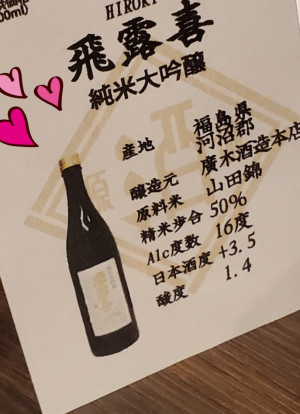 00ml)
HIROKI
飛露喜
純米大吟醸
産地 福島県
河沼郡
醸造元 廣木酒造本店
原料米 山田錦
精米歩合 50%
Alc度数 16度
日本酒度 +3.5
酸度 1.4